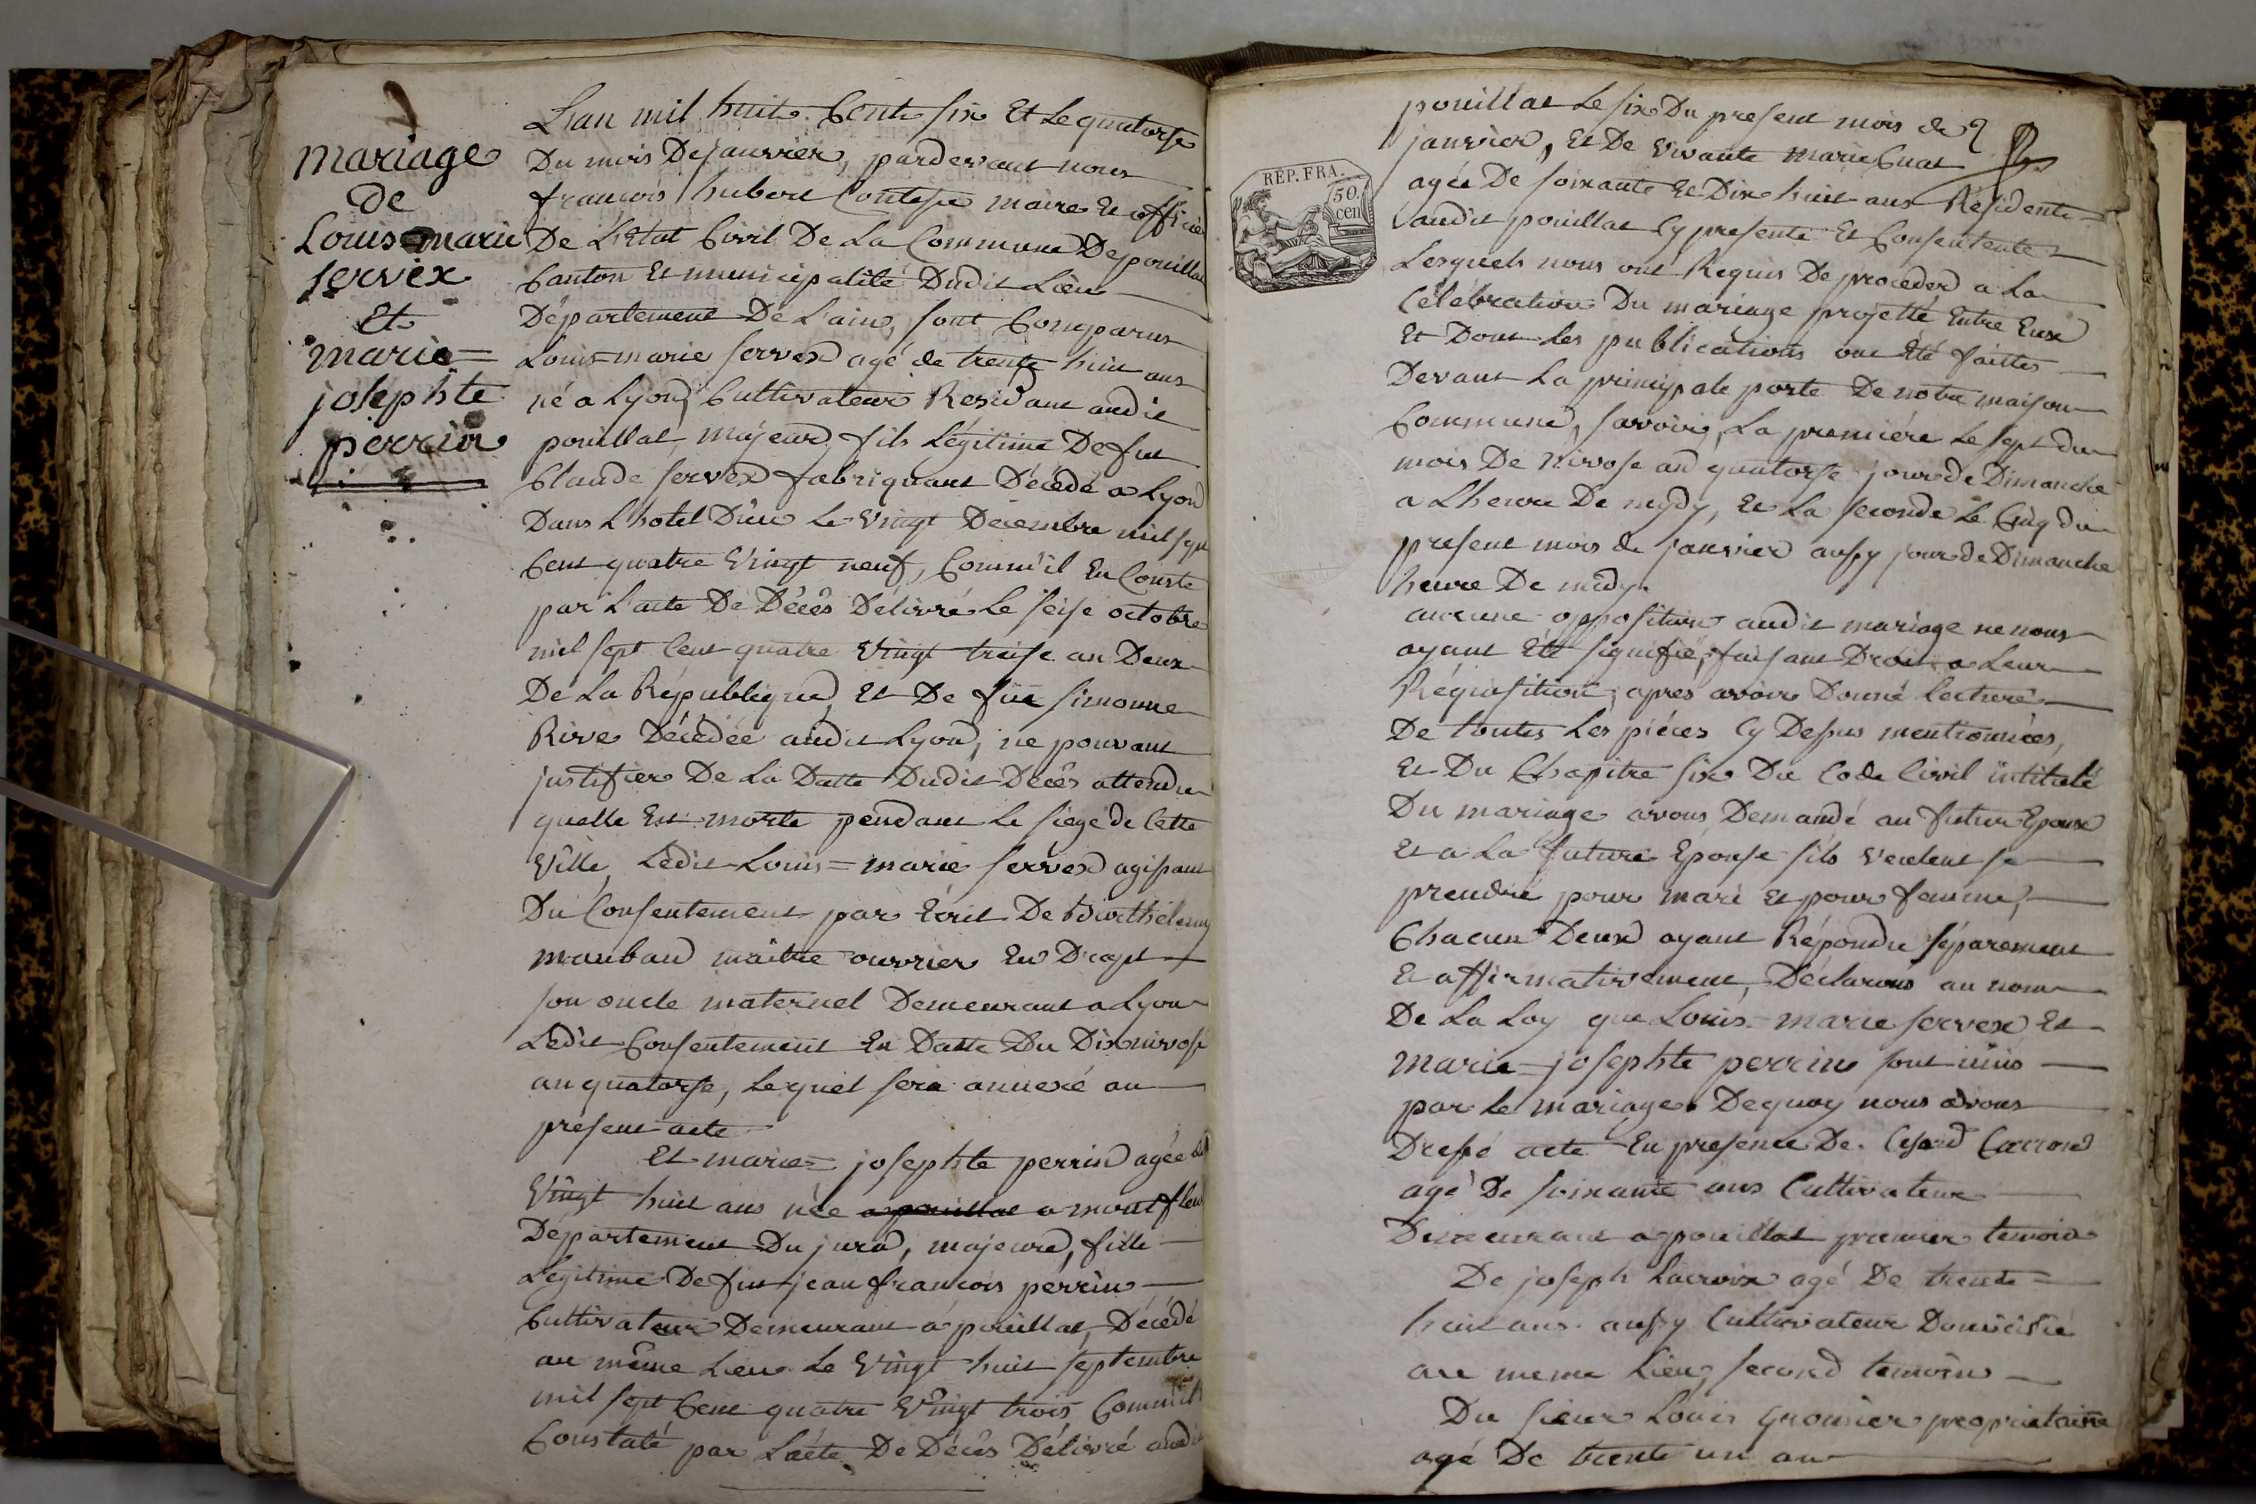 mariage
de
Louis marie
servex
Et
marie=
josephte
perrin
L'an mil huit Cent six Et Le quatorse
Du mois De janvier, pardevant nous
francois hubert maire Et officier
De L'Etat Civil De La Commune De pouillat
Canton Et municipalité Dudit Lieu
Département De L'ain, sont Comparus
Louis=marie servex agé de trente huit ans
né a Lyon, Cultivateur Residant audit
pouillat, majeur, fils Légitime De feu
Claude servex fabriquant Décédé a Lyon
Dans L'hotel Dieu Le Vingt Décembre mil sept
Cent quatre Vingt neuf, Comm'il En Conste
par L'acte De Décès Délivré Le seise octobre
mil sept Cent quatre Vingt treise an Deux
De La République, Et De fue simonne
Rive Décédée audit Lyon, ne pouvant
justifier De La Datte Dudit Décès attendu
quelle Est morte pendant Le siege de Cette
Ville, Ledit Louis=marie servex agissant
Du Consentement par Ecrit De Barthélemy
maubau maitre ouvrier En Drapt
son oncle maternel Demeurant a Lyon
Ledit Consentement En Datte Du Dix nivose
an quatorse, Lequel sera annexé au
present acte
Et marie= josephte perrin agée de
Vingt huit ans née a pouillat a montfleur
Département Du jura, majeure, fille
Légitime De feu jean francois perrin
Cultivateur Demeurant a pouillat, Décédé
au même Lieu Le Vingt huit septembre
mil sept Cent quatre Vingt trois Comm'il
Constaté par L'acte De Décès Délivré audit
pouillat Le six Du present mois de
janvier, Et De vivante marie Cuat
agée De soixante Et Dix huit ans Résidente
audit pouillat Cy presente Et Consentente
Lesquels nous ont Requis De proceder a La
Célébration Du mariage projetté Entre Eux
Et Dont Les publications ont Eté faittes
Devant La principale porte De notre maison
Commune, savoir, La première Le sept du
mois De Nivose an quatorse jour de Dimanche
a L'heure De mydy, Et La seconde Le Cinq du
present mois de janvier aussy jour de Dimanche
heure De midy.
aucune opposition audit mariage ne nous
ayant Eté signifié, faisant Droit a Leur
Réquisition, après avoir Donné Lecture
De toutes Les pièces Cy Dessus mentionnées,
Et Du Chapitre six Du Code Civil intitulé
Du mariage avons Demandé au futur Epoux
Et a La future Epouse s'ils veulent se
prendre pour mari Et pour femme,
Chacun D'eux ayant Répondu séparement
Et affirmativement, Déclarons au nom
De La Loy que Louis=marie servex Et
marie=josephte perrin sont unis
par Le mariage. Dequoy nous avons
Dressé acte En presence De Cesard Carrond
agé De soixante ans Cultivateur
Demeurant a pouillat premier temoin
De joseph Lacroix agé De trente=
huit ans aussy Cultivateur Domicilié
au meme Lieu, second temoin
Du sieur Louis proprietaire
agé De trente un an
REP. FRA.
50.
cen